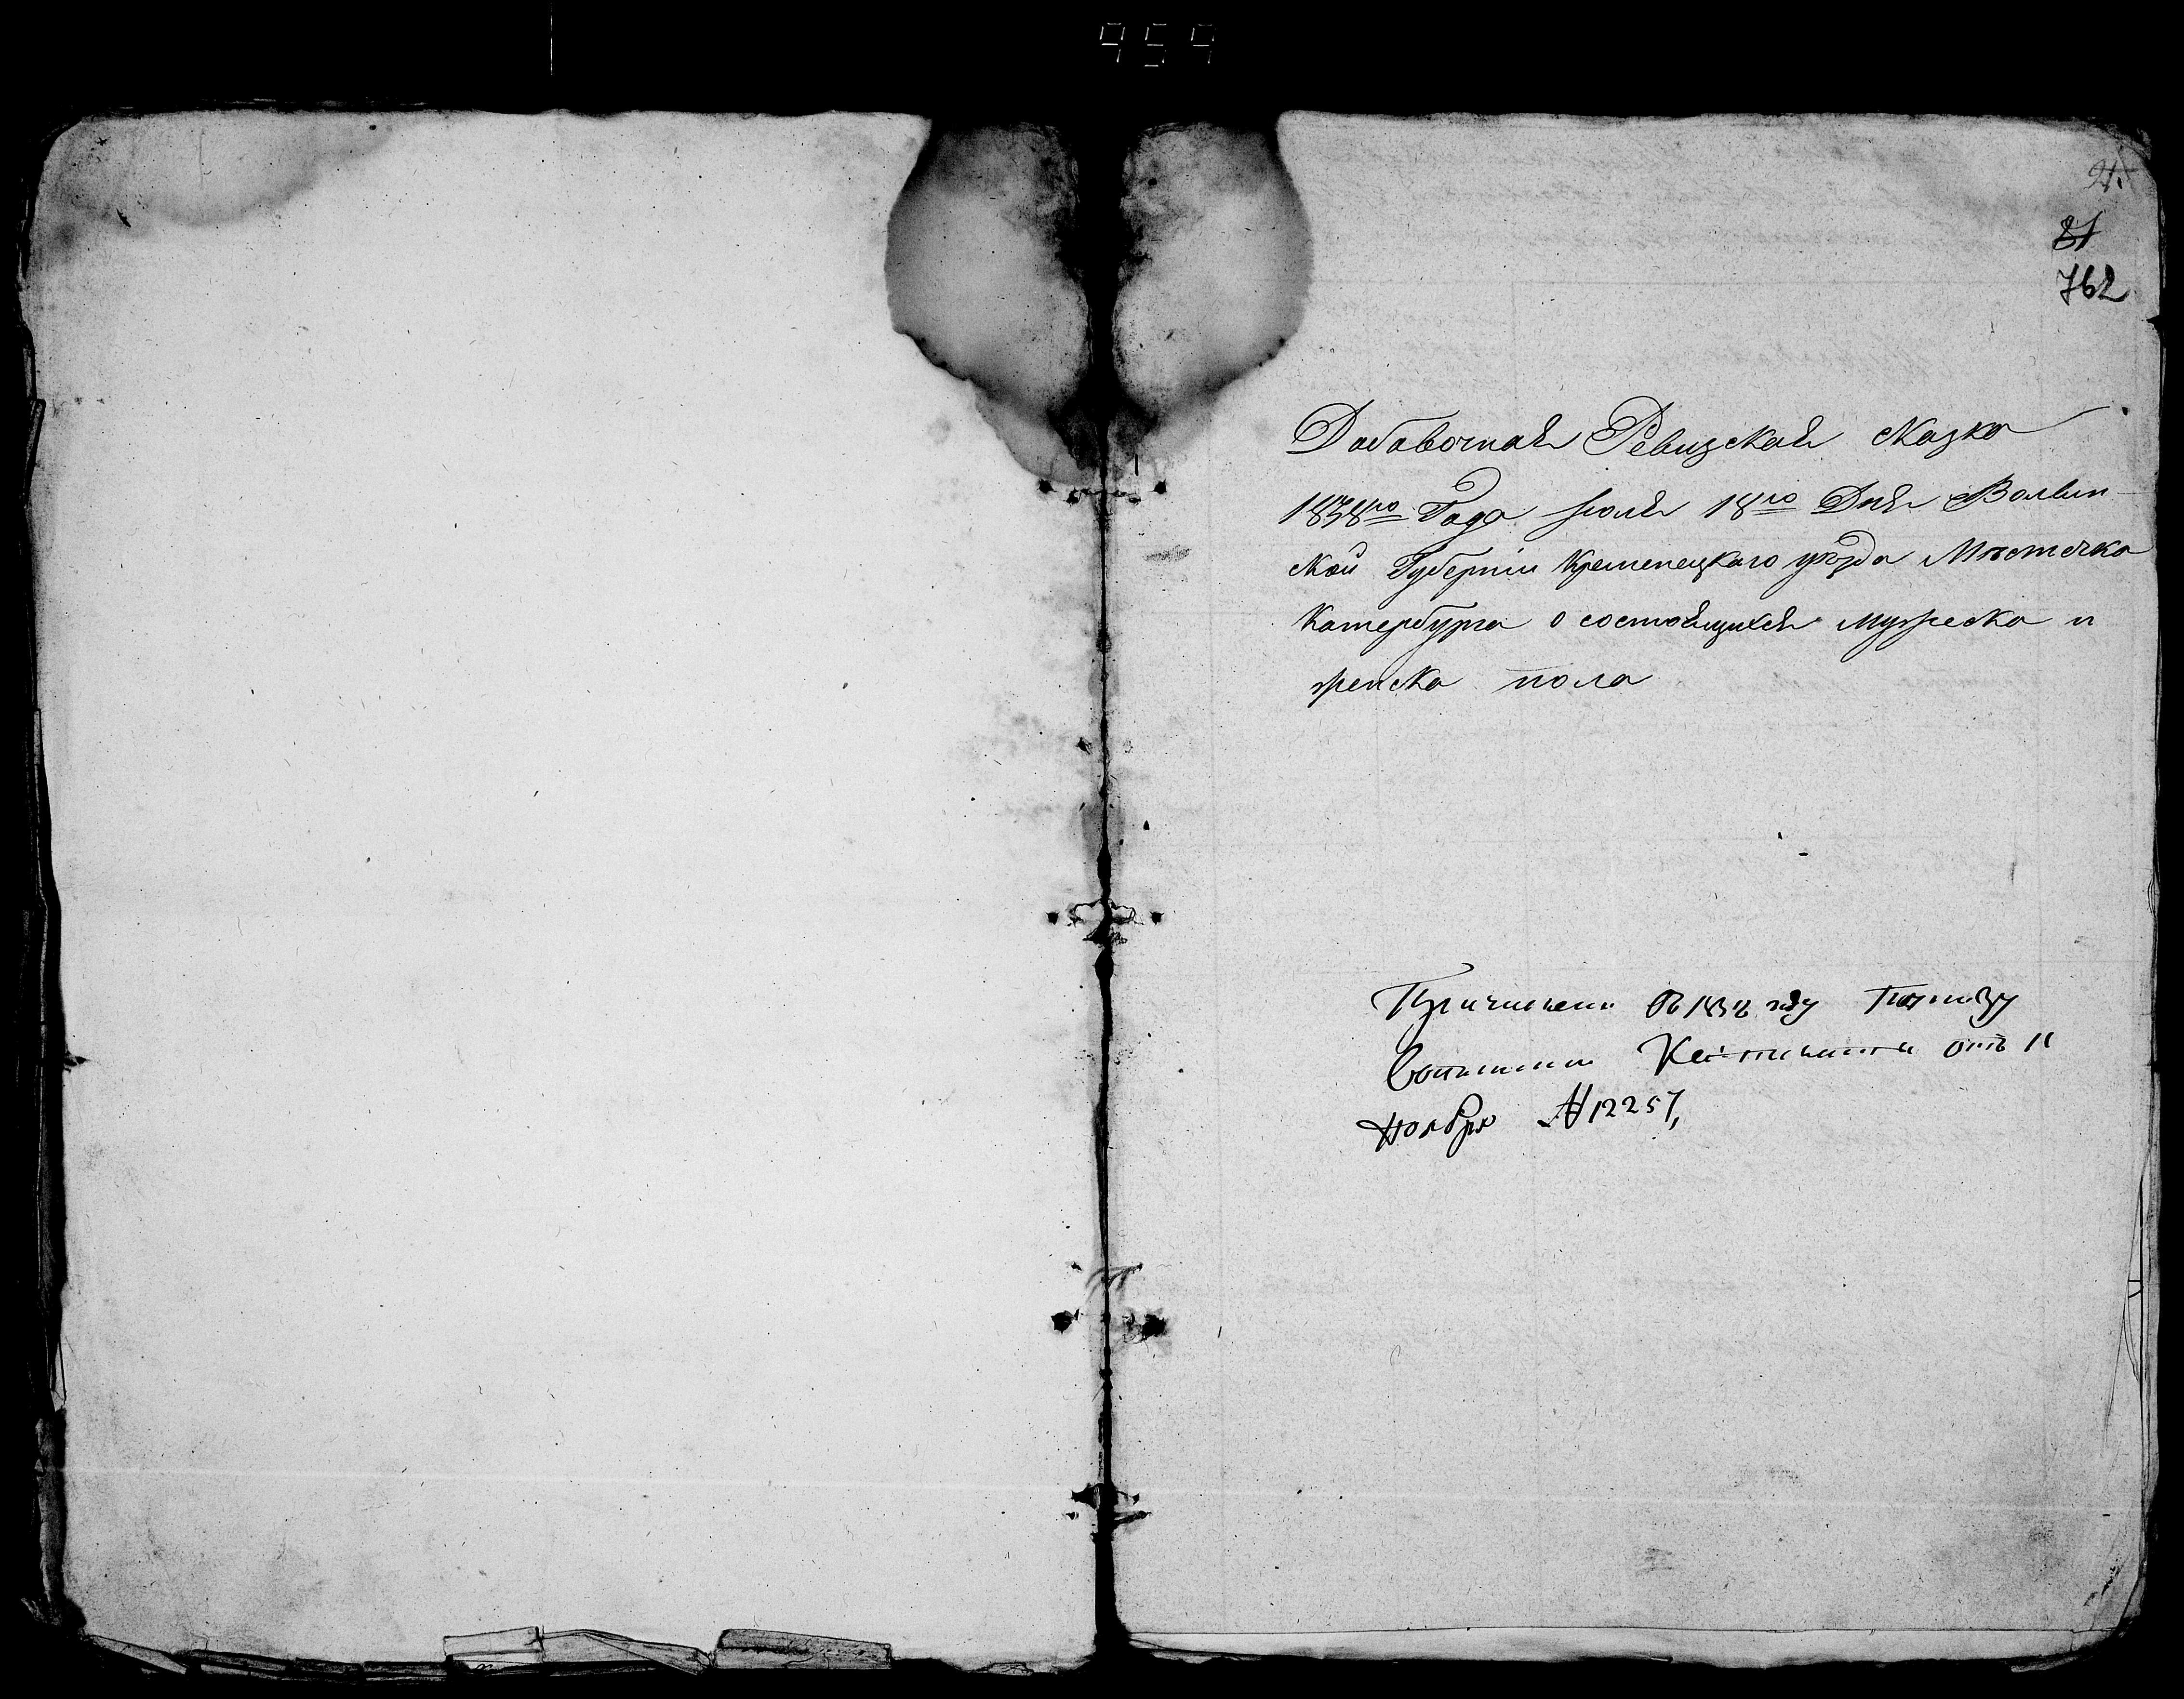 959
21.
81
762
Добавочная Ревизская сказка
1838го Года Июля 18го Дня Волын-
ской Губернии Кременецкаго уѣзда Мѣстечка
Катербурга о состоящихся мужеска и
женска пола
Причислены съ 1838 году
отъ 11
Ноября № 12257,